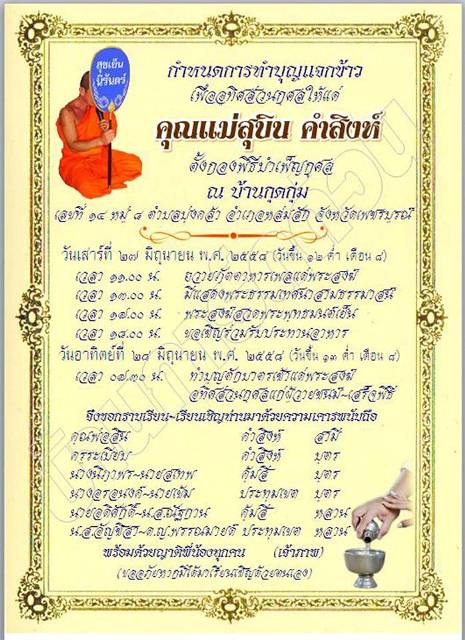 สุขเย็น
นิรันดร์
กำหนดการทำบุญแจกข้าว
เพื่ออุทิศส่วนกุศลให้แด่
คุณแม่สุบิน คำสิงห์
ตั้งกองพิธีบำเพ็ญกุศล
ณ บ้านกุดกุ่ม
เลขที่ ๑๔ หมู่ ๘ ตำบลบุ่งคล้า อำเภอหล่มสัก จังหวัดเพชรบูรณ์
วันเสาร์ที่ ๒๗ มิถุนายน พ.ศ. ๒๕๕๘ (วันขึ้น ๑๒ ค่ำ เดือน ๘)
เวลา ๑๑.๐๐ น. ถวายภัตตาหารเพลแด่พระสงฆ์
เวลา ๑๓.๐๐ น. มีแสดงพระธรรมเทศนาสามธรรมาสน์
เวลา ๑๗.๐๐ น. พระสงฆ์สวดพระพุทธมนต์เย็น
เวลา ๑๘.๐๐ น. ขอเชิญร่วมรับประทานอาหาร
วันอาทิตย์ที่ ๒๘ มิถุนายน พ.ศ. ๒๕๕๘ (วันขึ้น ๑๓ ค่ำ เดือน ๘)
เวลา ๐๗.๓๐ น. ทำบุญตักบาตรเช้าแด่พระสงฆ์
อุทิศส่วนกุศลแก่ผู้วายชนม์-เสร็จพิธี
จึงขอกราบเรียน-เรียนเชิญท่านมาด้วยความเคารพนับถือ
คุณพ่อสิน คำสิงห์ สามี
ครูระเบียบ คำสิงห์ บุตร
นางนิภาพร-นายสุเทพ คุ้มสี บุตร
นางอรอนงค์-นายเข้ม ประทุมเขต บุตร
นายอดิศักดิ์-น.ส.ณัฐกาน คุ้มสี หลาน
น.ส.อัญชิสา-ด.ญ.พรรณมายต์ ประทุมเขต หลาน
พร้อมด้วยญาติพี่น้องทุกคน (เจ้าภาพ)
(ขออภัยหากมิได้มาเรียนเชิญด้วยตนเอง)